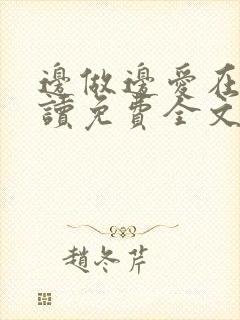 邊做邊愛在
讀免費全文
趙冬芹